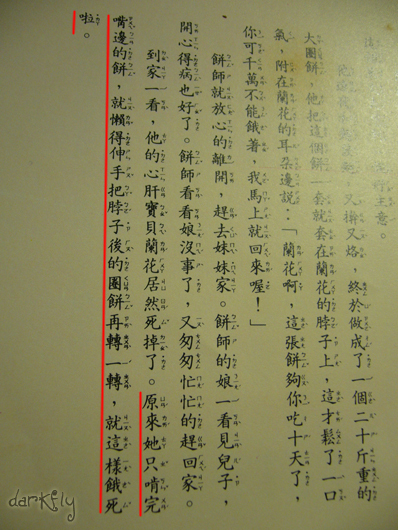 主意。
又擀又烙，終於做成了一個二十斤重的
大團餅，他把這個餅一套就套在蘭花的脖子上，這才鬆了一口
氣，附在蘭花的耳朵邊說：「蘭花啊，這張餅夠你吃十天了，
你可千萬不能餓著，我馬上就回來喔！」
餅師就放心的離開，趕去妹妹家。餅師的娘一看見兒子，
開心得病也好了。餅師看看娘沒事了，又匆匆忙忙的趕回家。
到家一看，他的心肝寶貝蘭花居然死掉了。原來她只啃完
嘴邊的餅，就懶得伸手把脖子後的團餅再轉一轉，就這樣餓死
啦。
darkily